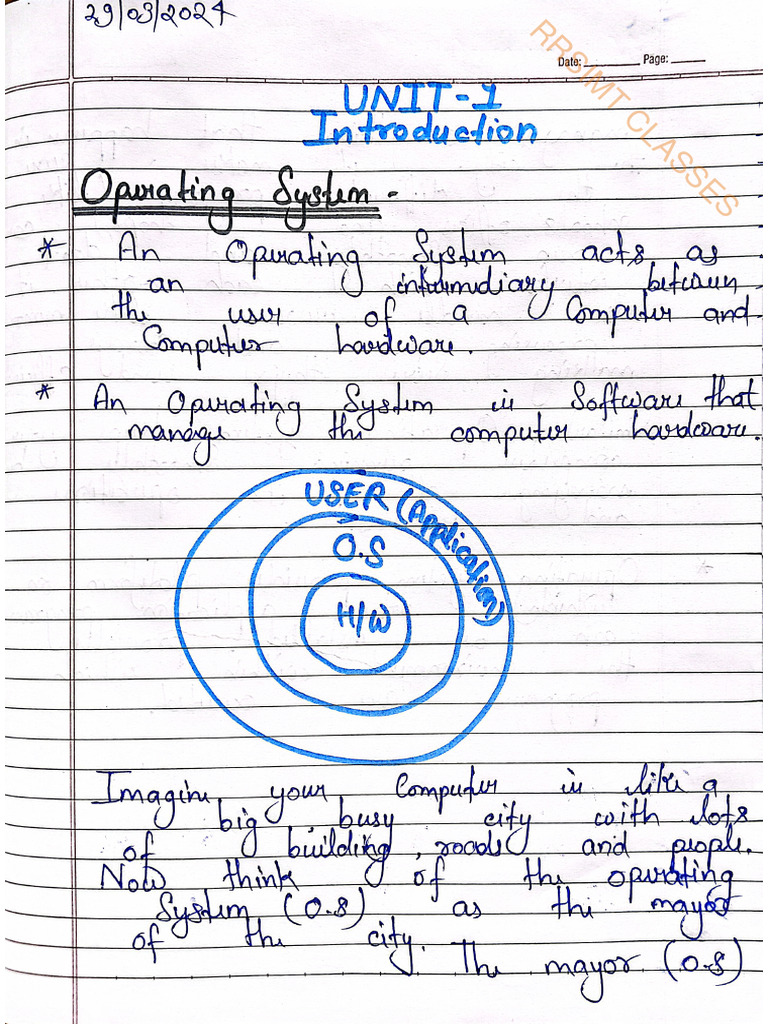 29/03/2024
RRSIMT CLASSES
Date: ________ Page: _____
UNIT-1
Introduction
Operating System -
* An Operating System acts as
an intermediary between
the user of a Computer and
Computer hardware.
* An Operating System is Software that
manage the computer hardware.
USER (Application)
O.S
H/W
Imagine your Computer is like a
big, busy city with lots
of building, roads and people.
Now think of the operating
System (O.S) as the mayor
of the city. The mayor (O.S)